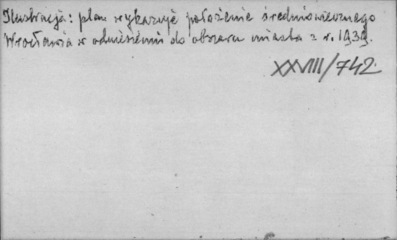 Ilustracja: plan wykazuje położenie średniowiecznego
Wrocławia w odniesieniu do obszaru miasta z r. 1939.
XXVIII/742.